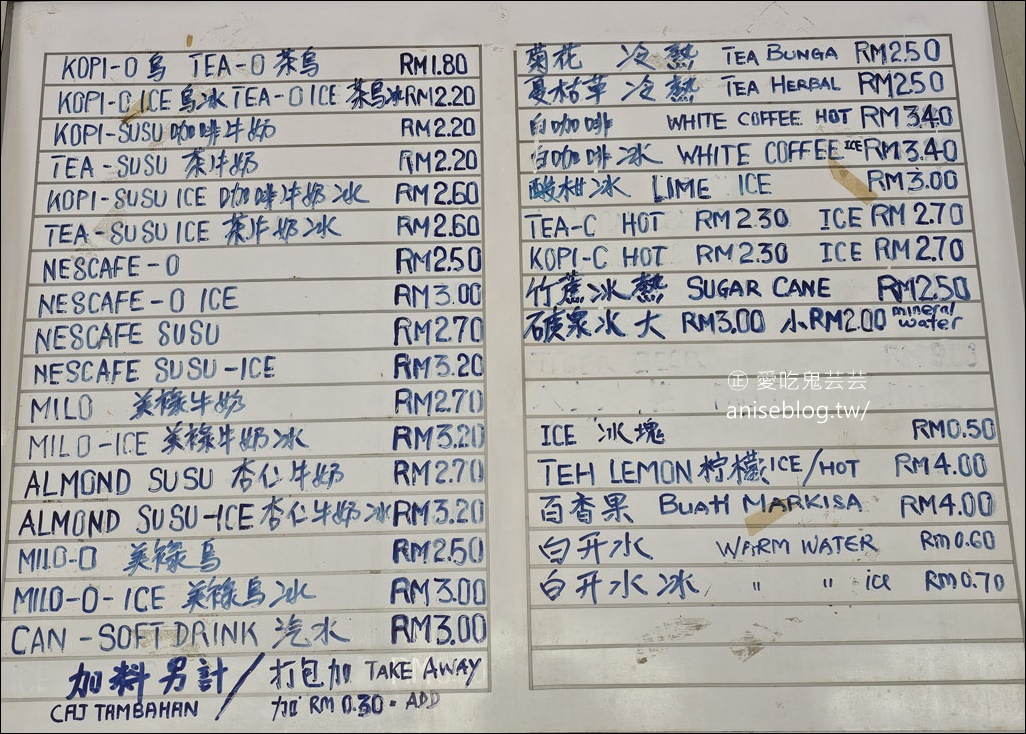 KOPI-O 烏 TEA-O 茶烏 RM1.80
KOPI-O ICE 烏冰 TEA-O ICE 茶烏冰 RM2.20
KOPI-SUSU 咖啡牛奶 RM2.20
TEA-SUSU 茶牛奶 RM2.20
KOPI-SUSU ICE 咖啡牛奶冰 RM2.60
TEA-SUSU ICE 茶牛奶冰 RM2.60
NESCAFE-O RM2.50
NESCAFE-O ICE RM3.00
NESCAFE SUSU RM2.70
NESCAFE SUSU-ICE RM3.20
MILO 美祿牛奶 RM2.70
MILO-ICE 美祿牛奶冰 RM3.20
ALMOND SUSU 杏仁牛奶 RM2.70
ALMOND SUSU-ICE 杏仁牛奶冰 RM3.20
MILO-O 美祿烏 RM2.50
MILO-O-ICE 美祿烏冰 RM3.00
CAN-SOFT DRINK 汽水 RM3.00
加料另計/打包加 TAKE AWAY
CAJ TAMBAHAN 加 RM 0.30. ADD
菊花 冷 熱 TEA BUNGA RM2.50
夏枯草 冷 熱 TEA HERBAL RM2.50
白咖啡 WHITE COFFEE HOT RM3.40
白咖啡冰 WHITE COFFEE ICE RM3.40
酸柑冰 LIME ICE RM3.00
TEA-C HOT RM2.30 ICE RM2.70
KOPI-C HOT RM2.30 ICE RM2.70
竹蔗冰 熱 SUGAR CANE RM2.50
礦泉冰 大 RM3.00 小RM2.00 mineral water
㊣ 愛吃鬼芸芸
aniseblog.tw/
ICE 冰塊 RM0.50
TEH LEMON 柠檬 ICE/HOT RM4.00
百香果 BUAH MARKISA RM4.00
白开水 WARM WATER RM0.60
白开水冰 " " ice RM0.70